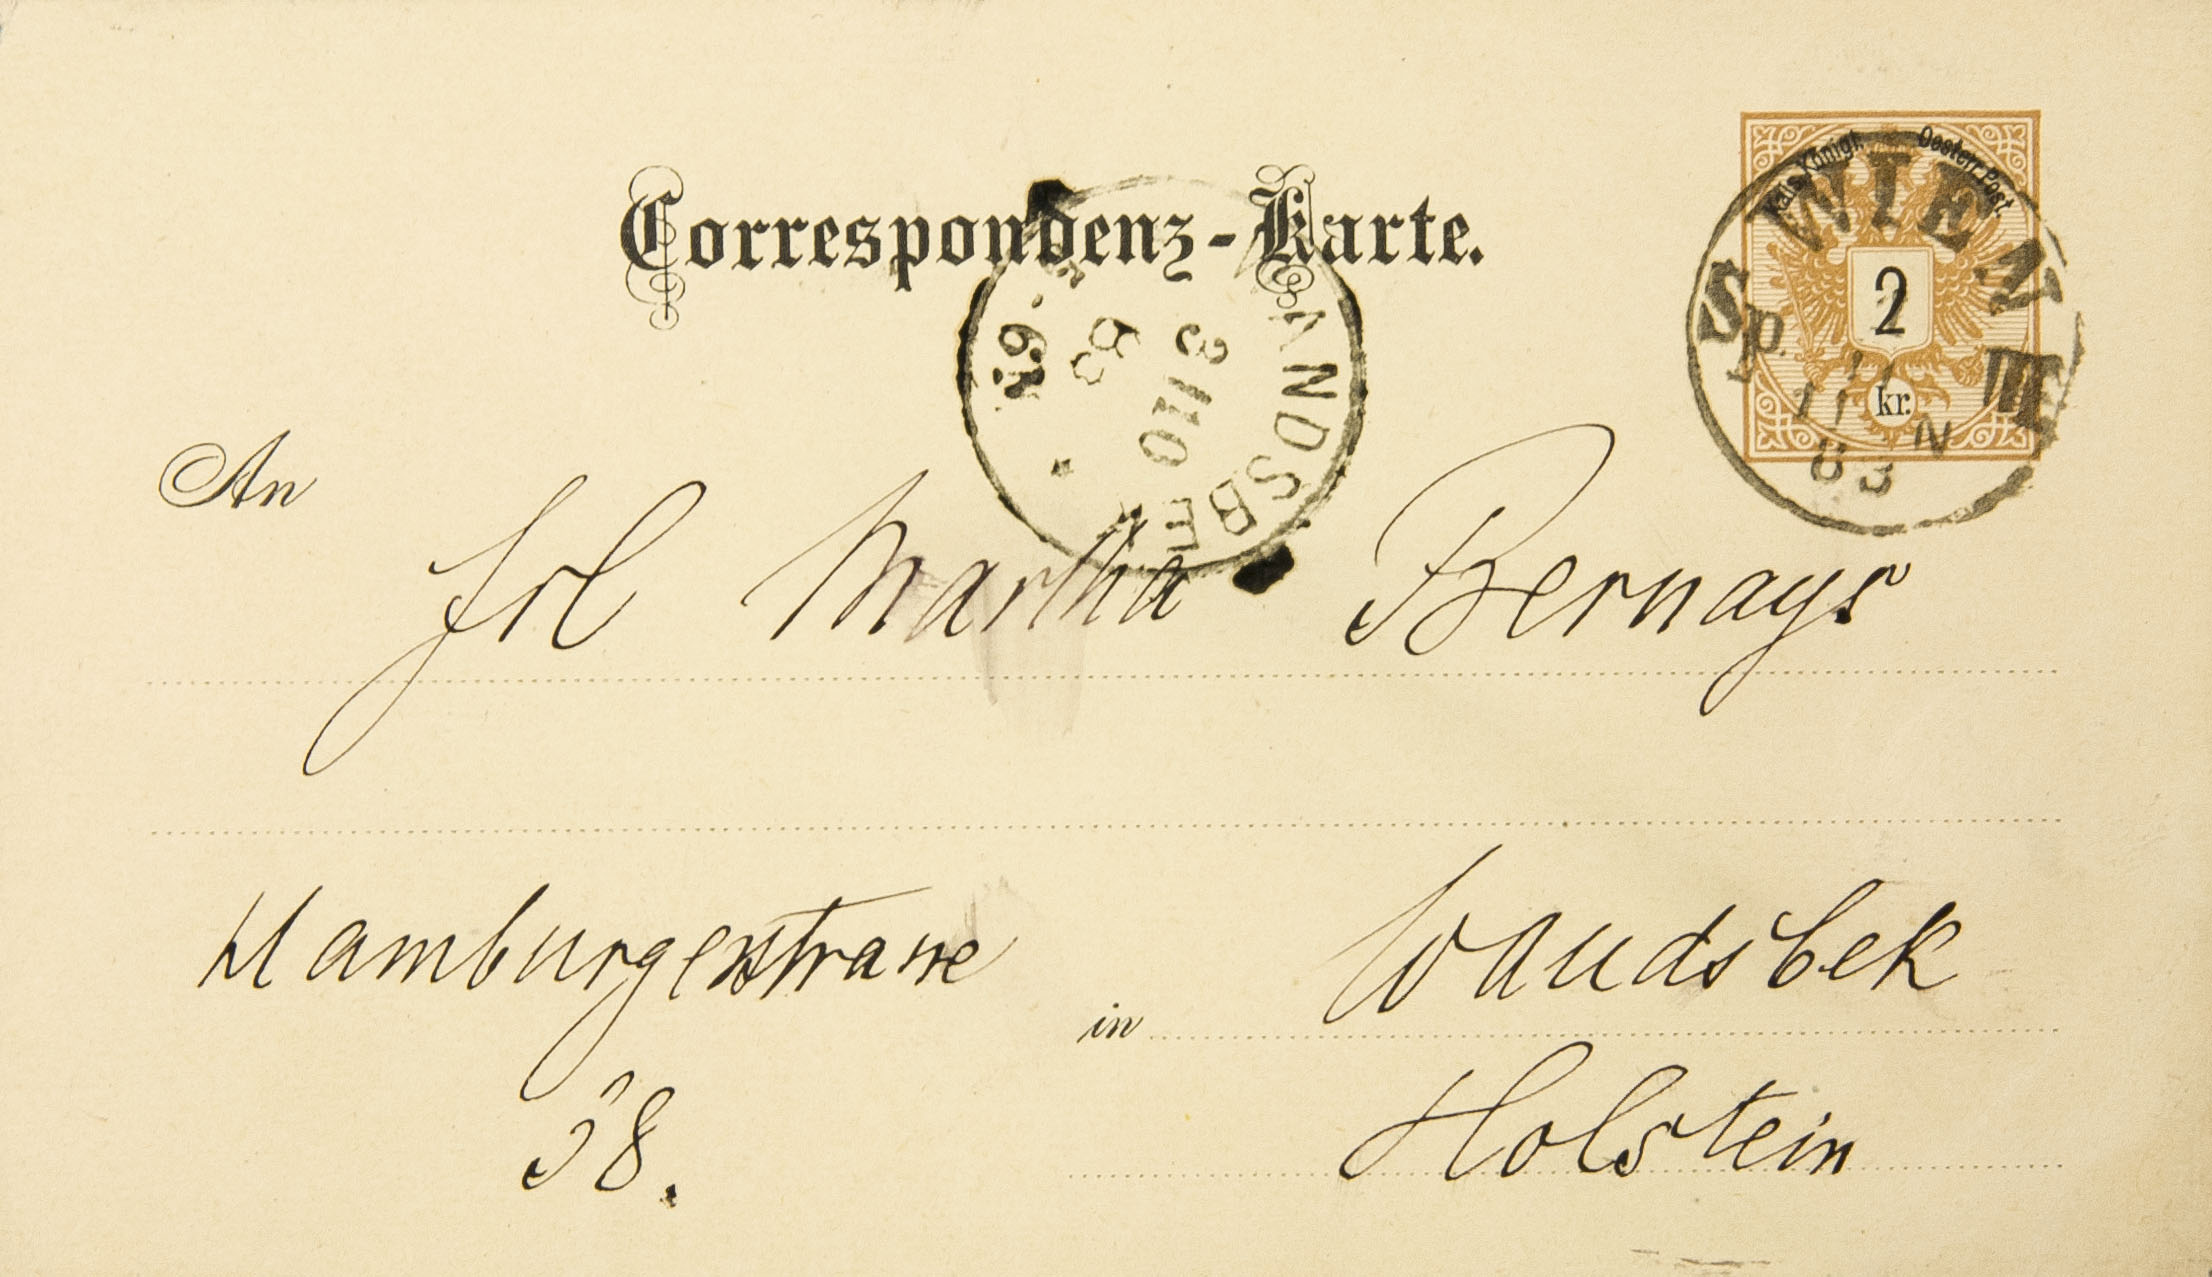 Correspondenz-Karte.
Kais. Königl. Oesterr. Post.
2
kr.
WIEN
Sp. III
11
11 N
83
WANDSBEK
3 | 10
83
6-7N
An
Frl Martha Bernays
Hamburgerstrasse
38.
in Wandsbek
Holstein